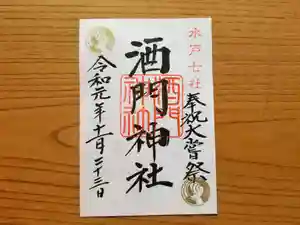 水戸七社
奉祝大嘗祭
酒門神社
令和元年十一月二十三日